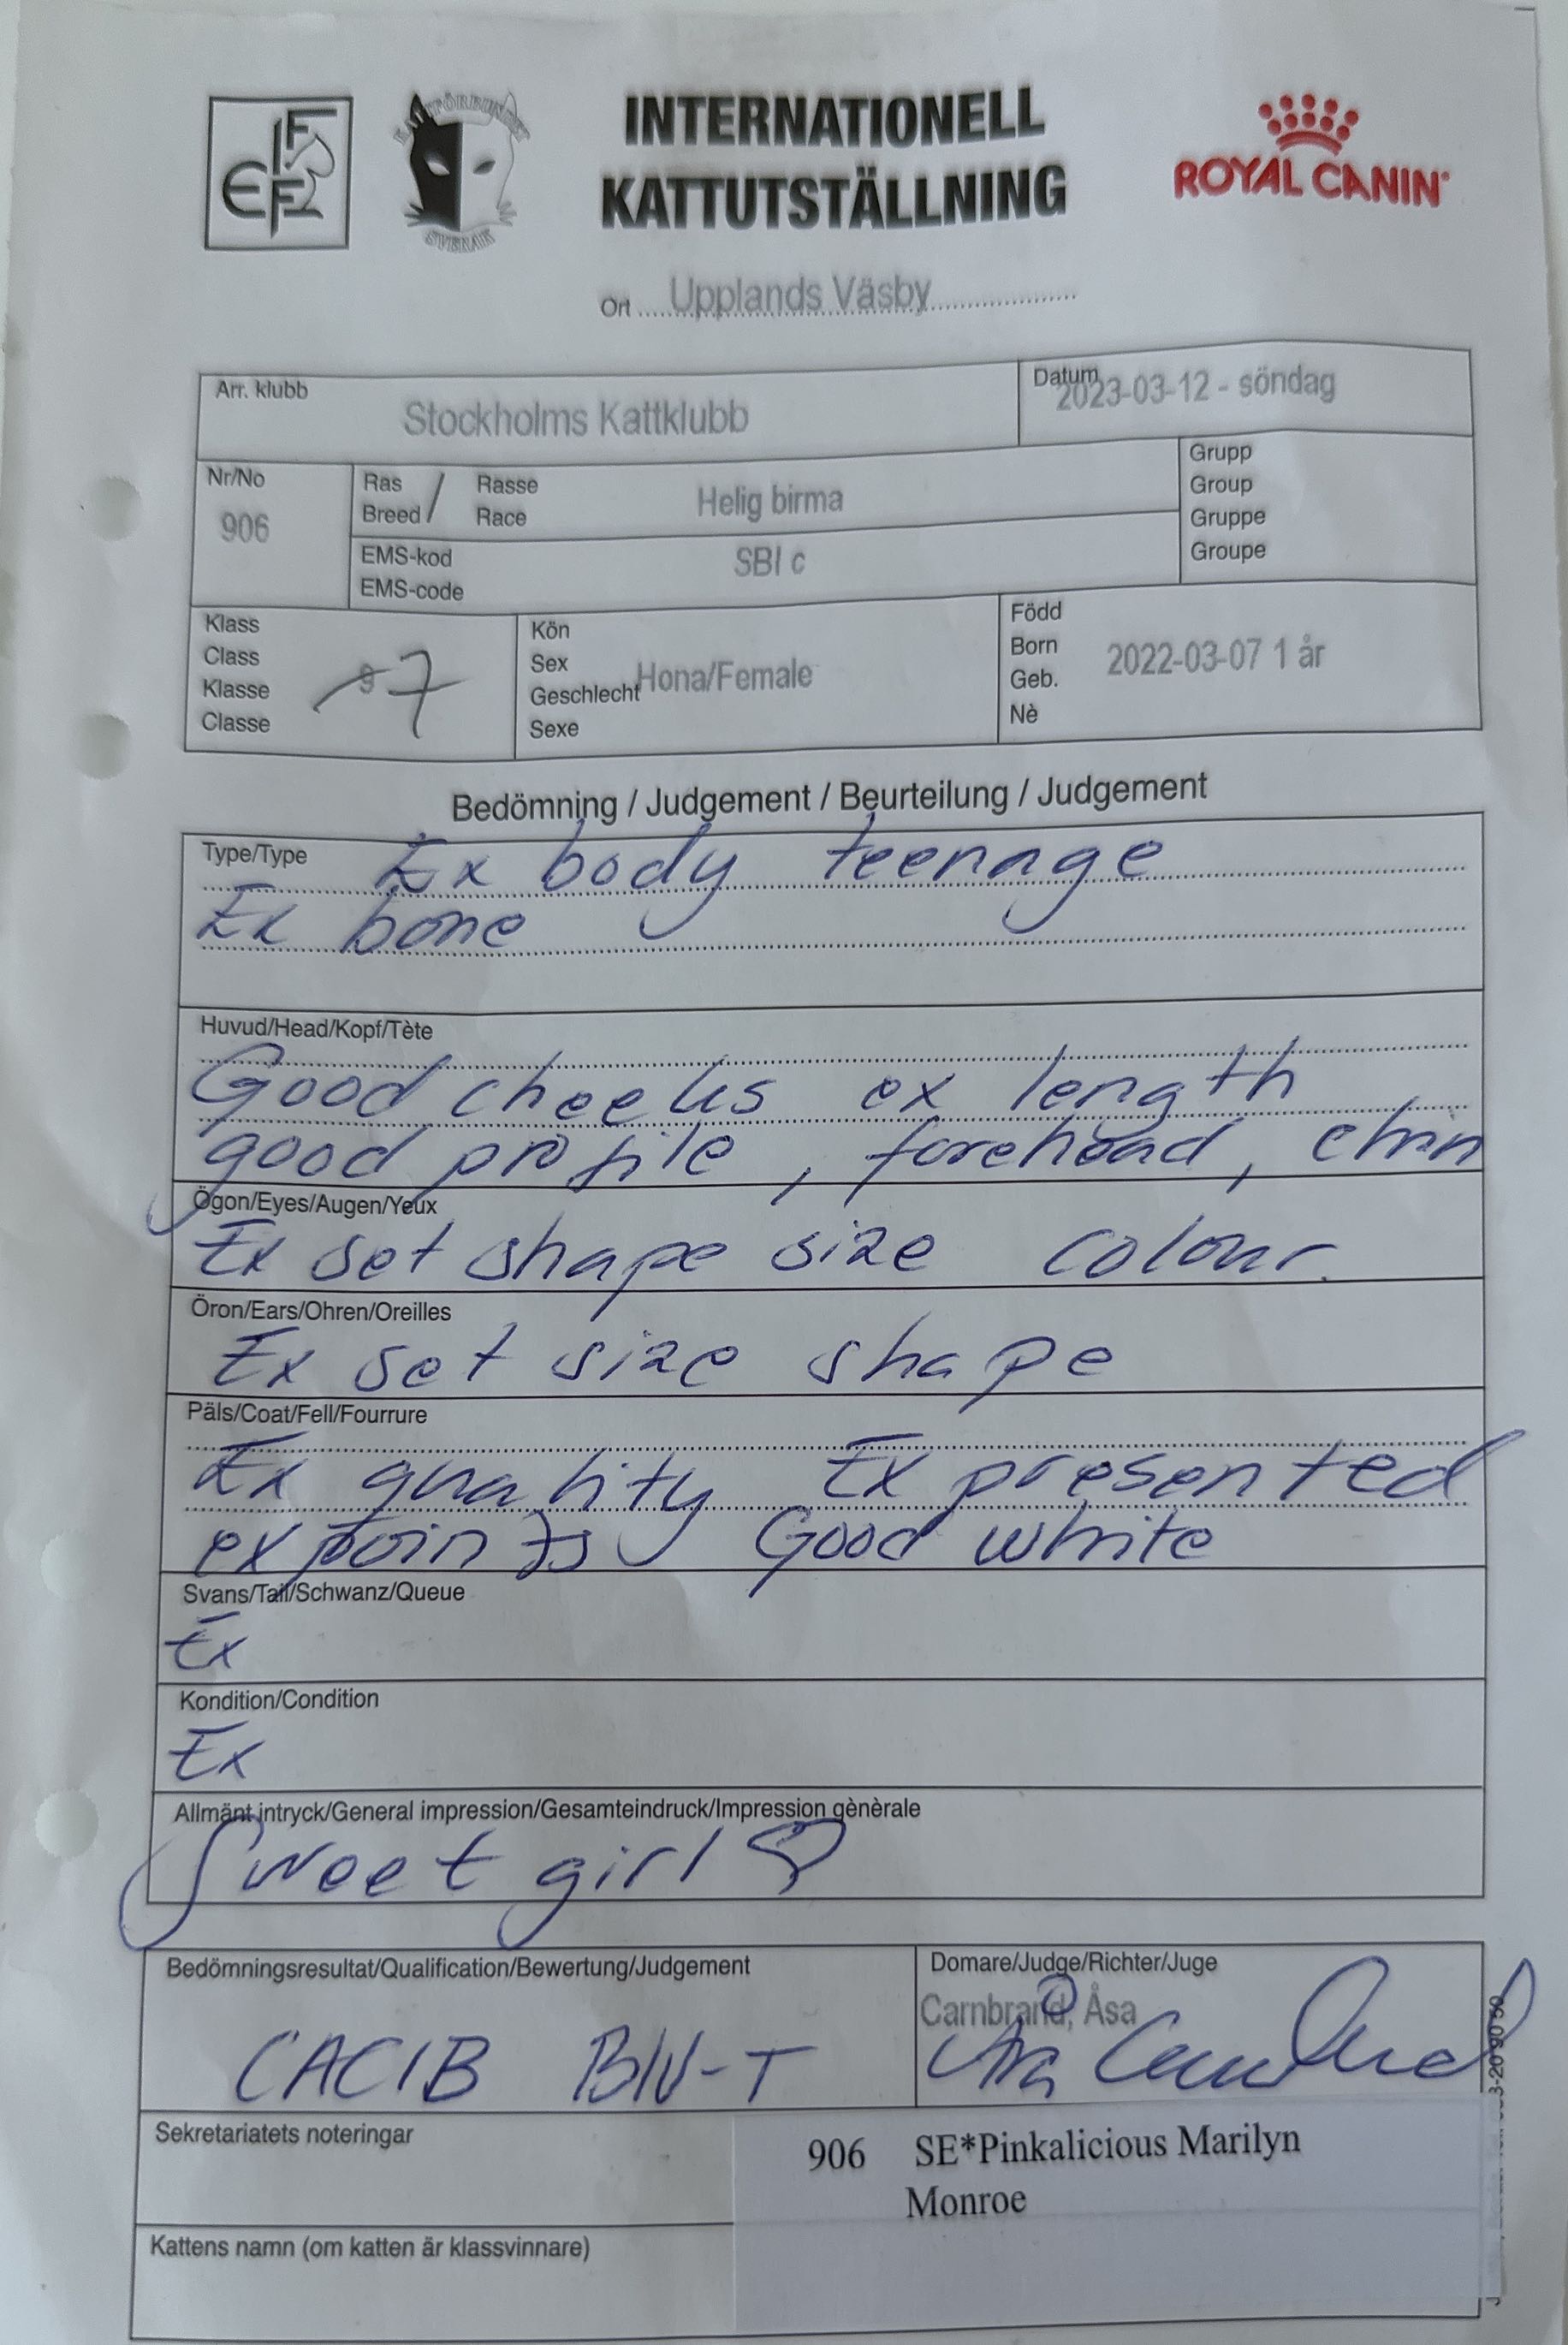 KATTFÖRBUNDET
SVERAK
INTERNATIONELL
KATTUTSTÄLLNING
ROYAL CANIN
Ort Upplands Väsby
Arr. klubb
Stockholms Kattklubb
Datum
2023-03-12 - söndag
Nr/No
906
Ras / Rasse
Breed / Race
Helig birma
EMS-kod
EMS-code
SBI c
Grupp
Group
Gruppe
Groupe
Klass
Class
Klasse
Classe
7
Kön
Sex
Geschlecht
Sexe
Hona/Female
Född
Born
Geb.
Nè
2022-03-07 1 år
Bedömning / Judgement / Beurteilung / Judgement
Type/Type
Ex body teenage
Ex bone
Huvud/Head/Kopf/Tète
Good cheeks ex length
good profile, forehead, chin
Ögon/Eyes/Augen/Yeux
Ex set shape size colour.
Öron/Ears/Ohren/Oreilles
Ex set size shape
Päls/Coat/Fell/Fourrure
Ex quality Ex presented
ex points Good white
Svans/Tail/Schwanz/Queue
Ex
Kondition/Condition
Ex
Allmänt intryck/General impression/Gesamteindruck/Impression gènèrale
Sweet girl ♡
Bedömningsresultat/Qualification/Bewertung/Judgement
CACIB BIV-T
Domare/Judge/Richter/Juge
Carnbrand, Åsa
Åsa Carnbrand
Sekretariatets noteringar
906 SE*Pinkalicious Marilyn
Monroe
Kattens namn (om katten är klassvinnare)